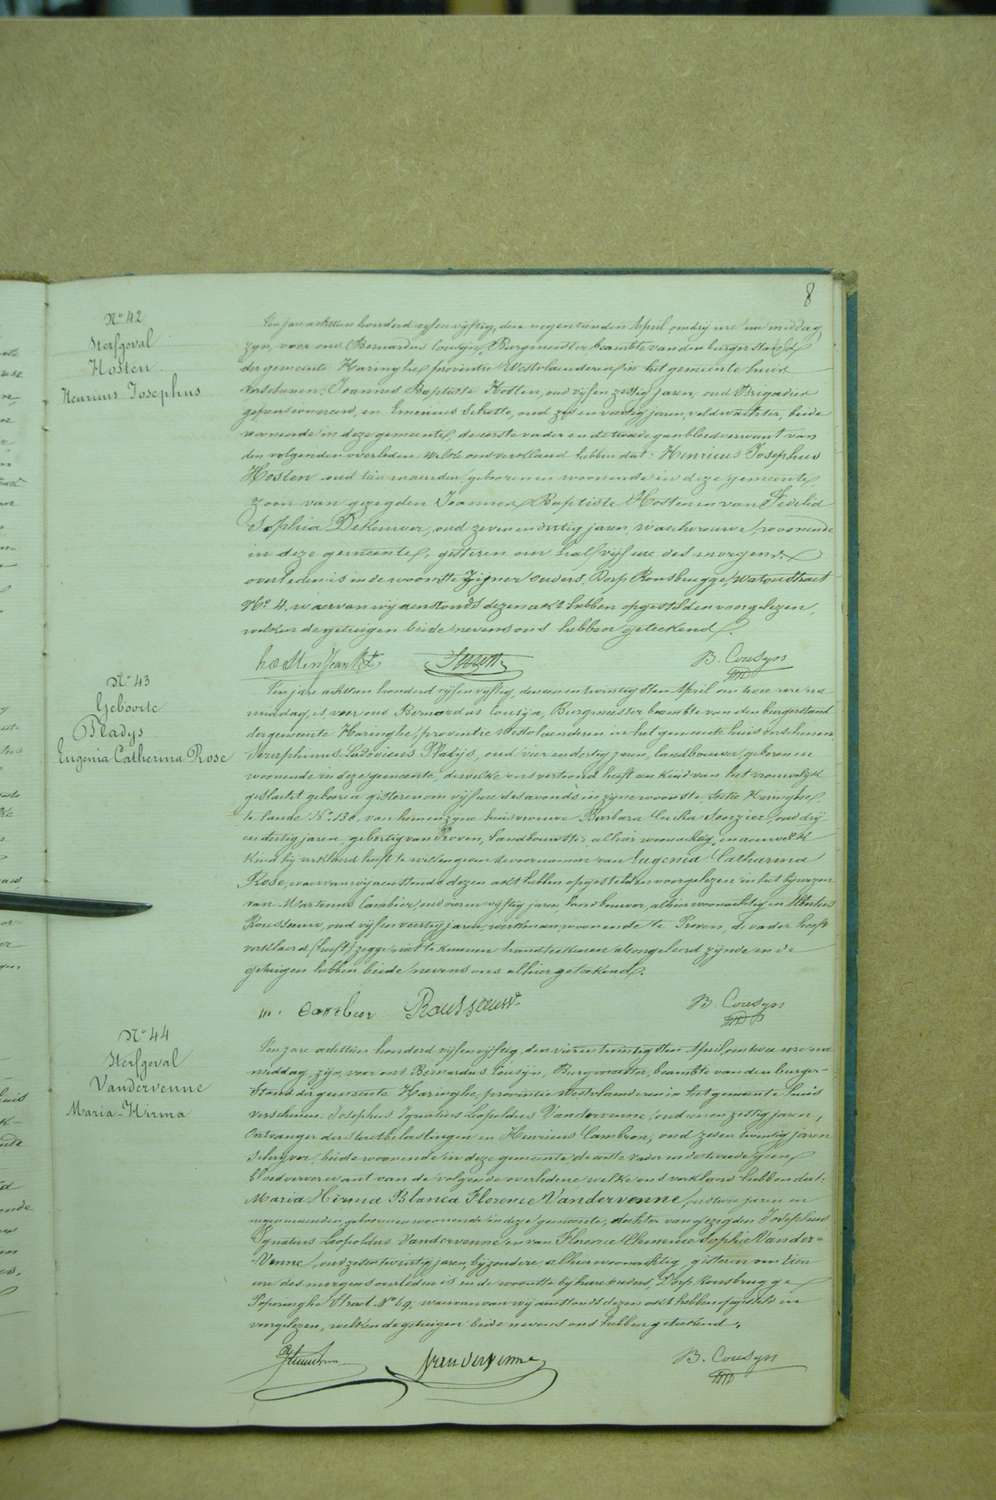 8
No 42
Sterfgeval
Hosten
Henricus Josephus
Ten jare achttien honderd vijf en vijftig, den negentienden April, om drij ure na middag,
zyn, voor ons Bernardus Cousyn, Burgemeester beambte van den burgerstand
der gemeente Haringhe, provintie Westvlaenderen in het gemeente huis
verschenen, Joannes Baptiste Hosten, oud vijf en zestig jaren, oud Brigadier
gepensionneerd, en Emericus oud zes en veertig jaren, veldwachter, beide
woonende in deze gemeente, de eerste vader en de tweede geen bloedverwant van
den volgenden overleden welke ons verklaerd hebben dat: Henricus Josephus
Hosten oud tien maenden, geboren en woonende in deze gemeente,
zoon van gezegden Joannes Baptiste Hosten en van Fidelia
Sophia oud zeven en dertig jaren, huisvrouwe, woonende
in deze gemeente, gisteren om half vijf ure des morgens
overleden is in de woonste zijner ouders, Dorp Rousbrugge, Watoustraet
No 4, waervan wij aenstonds dezen akt hebben opgesteld en voorgelezen,
welken de getuigen beide nevens ons hebben geteekend.
hosten Jean Bt B. Cousyn
No 43
Geboorte
Pladys
Eugenia Catherina Rose
Ten jare achttien honderd vijf en vijftig, den een en twintigsten April om twee ure na
middag, is voor ons Bernardus Cousyn, Burgemeester beambte van den burgerstand
der gemeente Haringhe, provintie Westvlaenderen in het gemeente huis verschenen,
Seraphinus Ludovicus Pladys, oud vier en dertig jaren, landbouwer, geboren en
woonende in deze gemeente, dewelke ons vertoond heeft een kind van het vrouwelijk
geslacht geboren gisteren om vijf ure des avonds in zijne woonste, Sectie Haringhe,
te lande No 138, van hem en zyne huisvrouwe Barbara oud drij
en dertig jaren, geboortig van Proven, landbouwster alhier woonachtig, en aen welk
kind hij verklaerd heeft te willen geven de voornamen van Eugenia Catharina
Rose, waervan wij aenstonds dezen akt hebben opgesteld en voorgelezen in het bijwezen
van Martinus Cambier, oud vier en vijftig jaren, landbouwer, alhier woonachtig en
Rousseeuw, oud vijf en veertig jaren, werkman, woonende te Proven, de vader heeft
verklaerd (heeft) zegge niet te kunnen handteekenen als ongeleerd zijnde en de
getuigen hebben beide nevens ons alhier geteekend.
m. cambier Rousseeuw B. Cousyn
No 44
Sterfgeval
Vandervenne
Maria-Hirma
Ten jare achttien honderd vijf en vijftig, den vier en twintigsten April, om twee ure na
middag, zijn, voor ons Bernardus Cousyn, Burgmeester, beambte van den burger-
stand der gemeente Haringhe, provintie Westvlaenderen in het gemeente huis
verschenen Josephus Ignatius Leopoldus Vandervenne, oud vier en zestig jaren,
Ontvanger der Staetbelastingen en Henricus Cambron, oud zes en twintig jaren
Schryver, beide woonende in deze gemeente, de eerste vader en de tweede geen
bloedverwant van de volgende overledene welke ons verklaerd hebben dat:
Maria Hirma Blanca Florence Vandervenne, oud twee jaren en
negen maenden, geboren en woonende in deze gemeente, dochter van gezegden Josephus
Ignatius Leopoldus Vandervenne en van Florence Clemence Sophie Vander-
Venne, oud zes en twintig jaren, byzondere, alhier woonachtig, gisteren om tien
ure des morgens overleden is in de woonste by hare ouders, Dorp Rousbrugge
Poperinghe Straet No 69, waervan wij aenstonds dezen akt hebben opgesteld en
voorgelezen, welken de getuigen beide nevens ons hebben geteekend.
vandervenne B. Cousyn